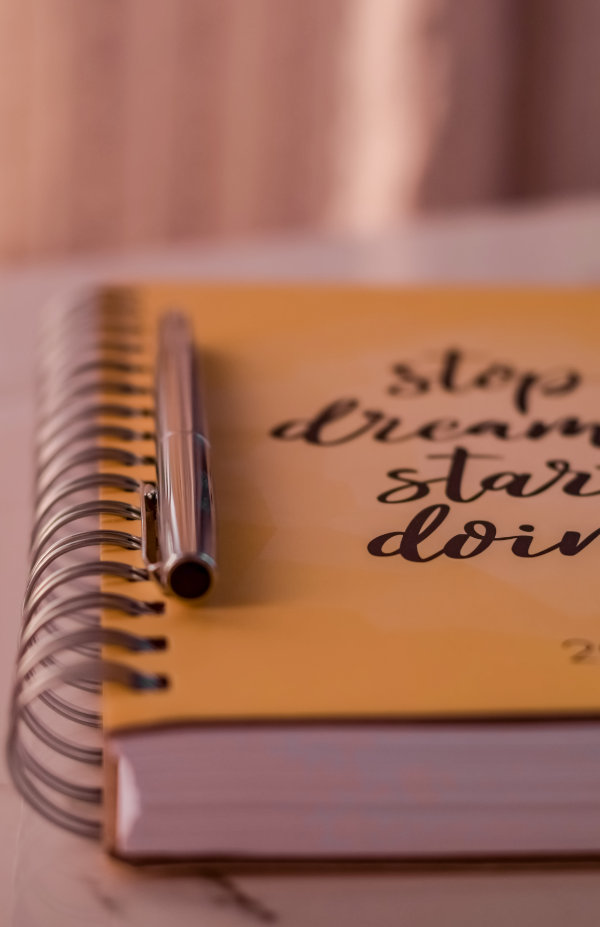 stop
dream
star
doin
2